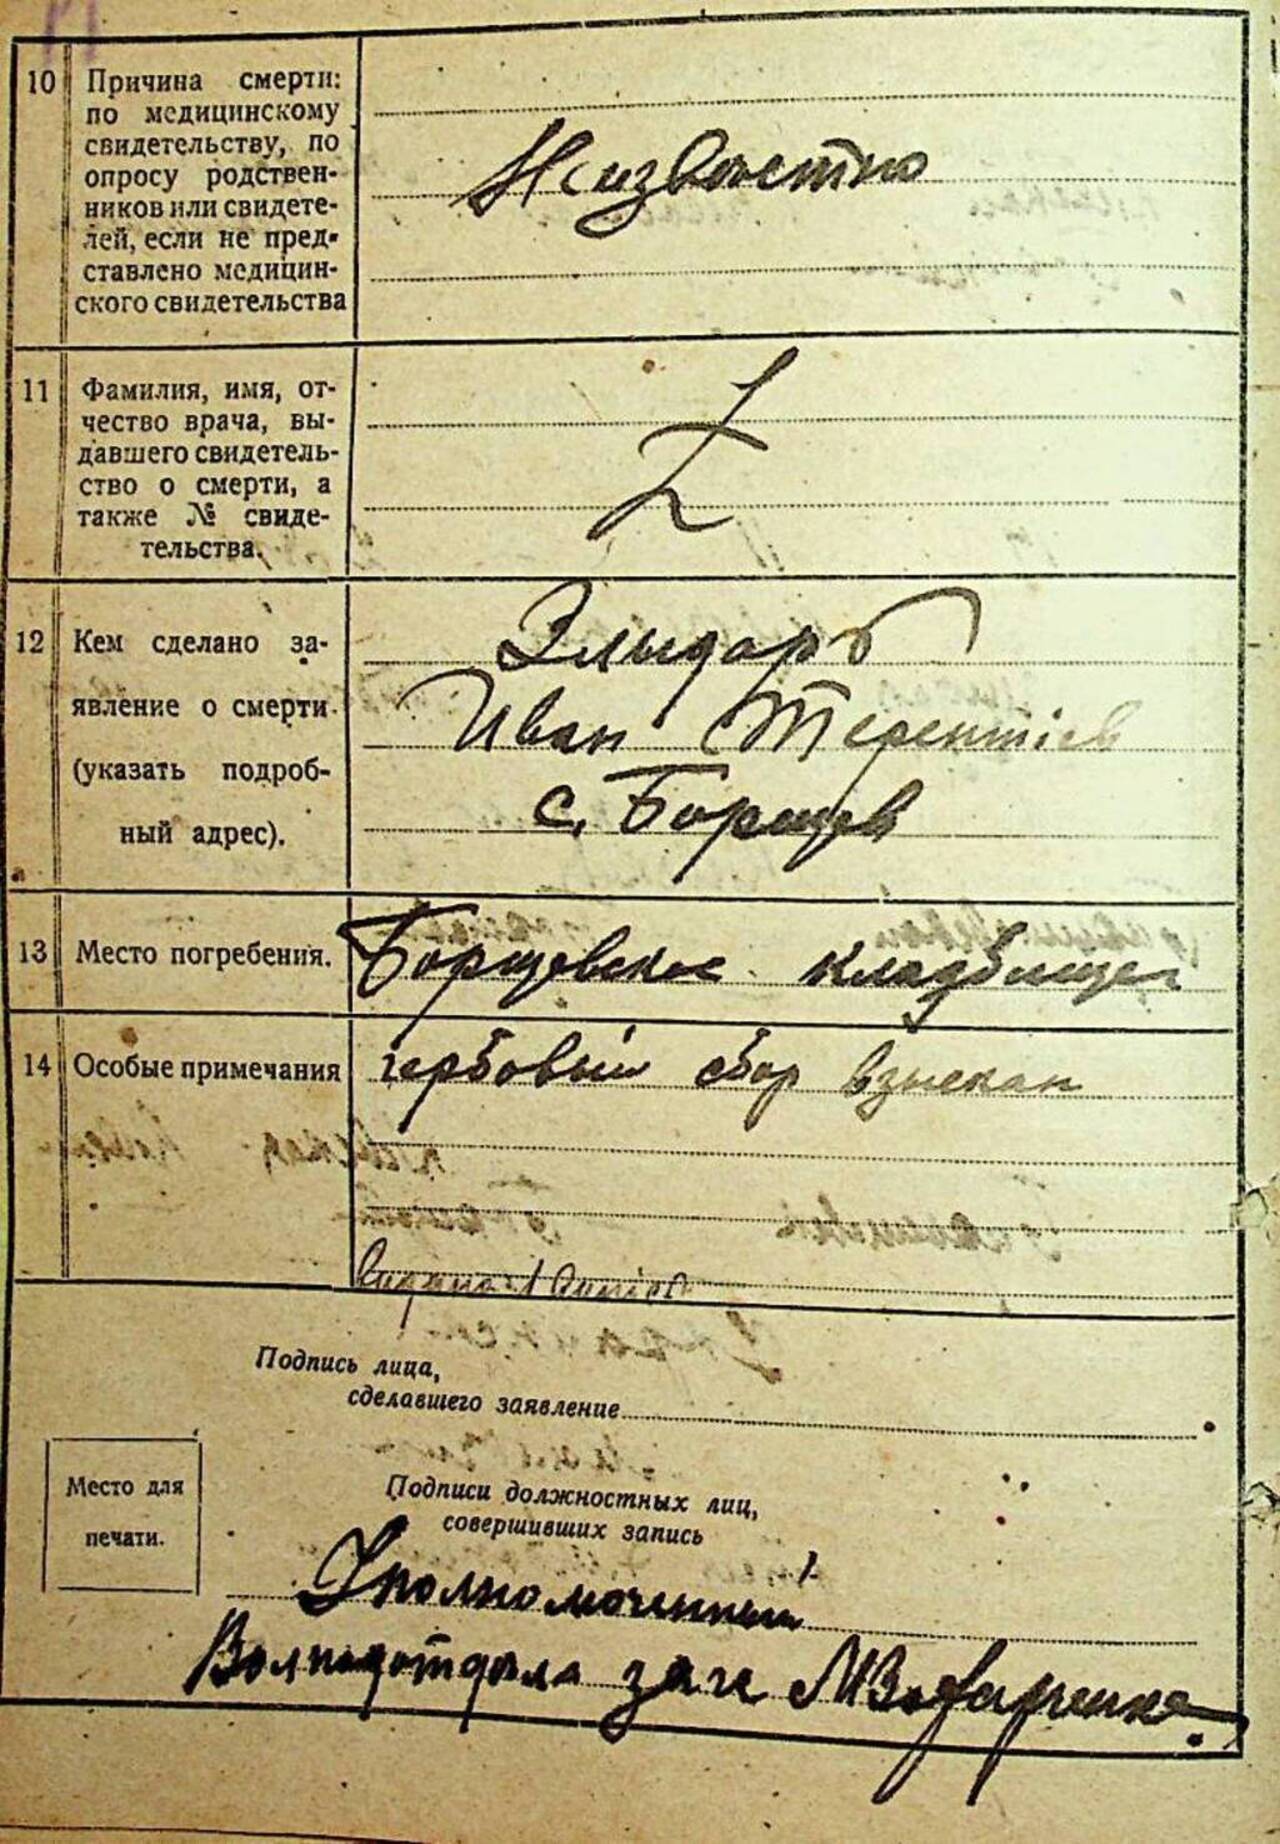 10 Причина смерти:
по медицинскому
свидетельству, по
опросу родствен-
ников или свидете-
лей, если не пред-
ставлено медицин-
ского свидетельства
Неизвестно
11 Фамилия, имя, от-
чество врача, вы-
давшего свидетель-
ство о смерти, а
также № свиде-
тельства.
12 Кем сделано за-
явление о смерти
(указать подроб-
ный адрес).
Иван
с. Борщев
13 Место погребения.
Борщевское кладбище
14 Особые примечания
гербовый сбор взыскан
Подпись лица,
сделавшего заявление
Место для
печати.
Подписи должностных лиц,
совершивших запись
Уполномоченный